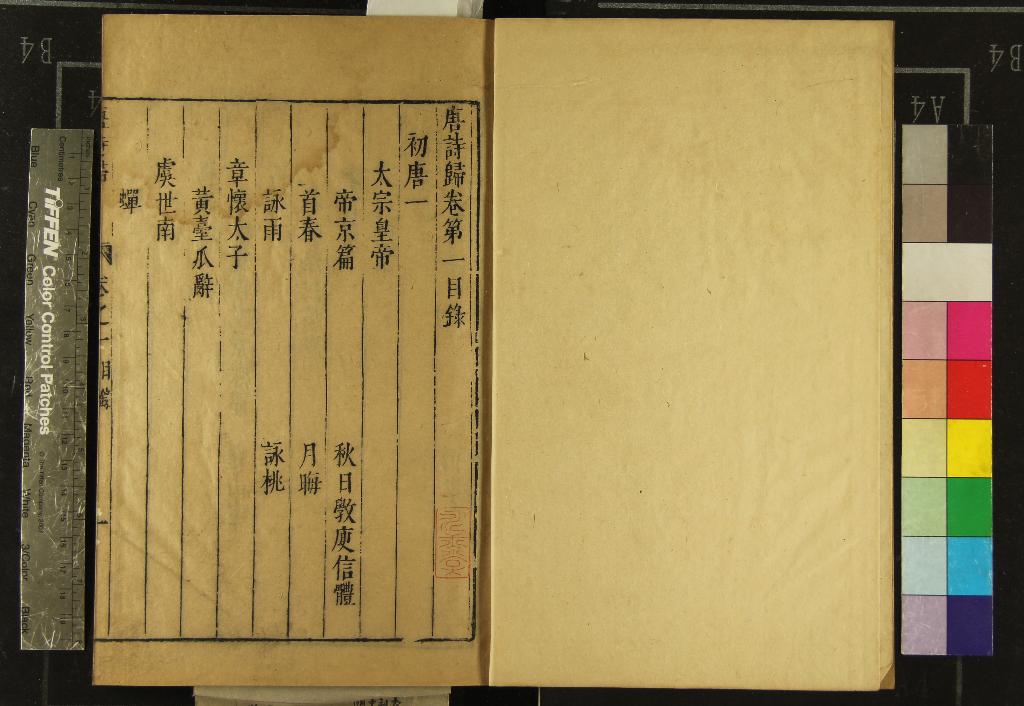 唐詩歸卷第一目錄
初唐一
太宗皇帝
帝京篇
秋日斆庾信體
首春
月晦
詠雨
詠桃
章懷太子
黃臺瓜辭
虞世南
蟬
卷之一 目錄
TIFFEN Color Control Patches
Centimetres
Blue
Cyan
Green
Yellow
Red
Magenta
White
3/Color
Black
B4
A4
B4